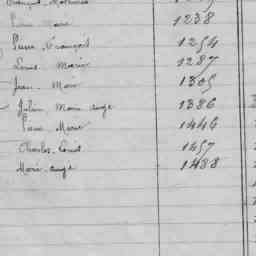 Marie 1238
Pierre François 1254
Louis Marie 1287
Jean Marie 1305
Julien Marie Ange 1386
Pierre Marie 1446
Charles Louis 1457
Marie Ange 1488